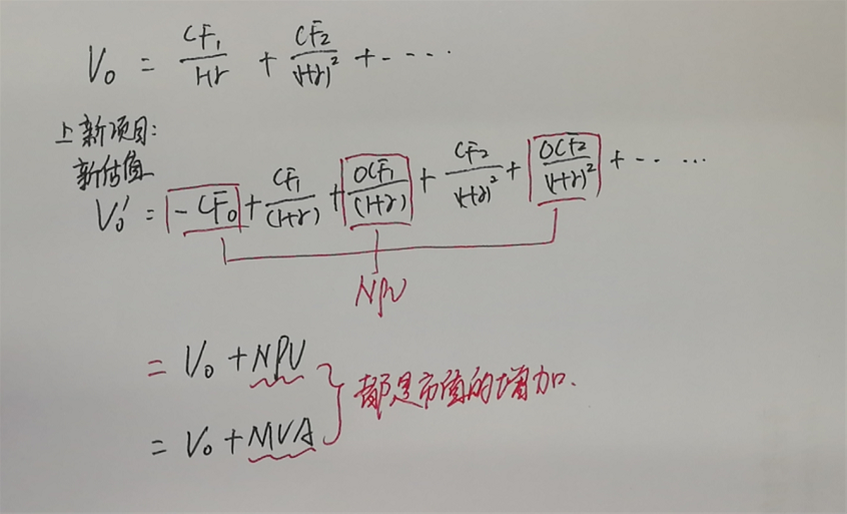 V₀ = CF₁/(1+r) + CF₂/(1+r)² + -----
上新项目:
新估值
V₀' = -CF₀ + CF₁/(1+r) + OCF₁/(1+r) + CF₂/(1+r)² + OCF₂/(1+r)² + -- --
NPV
= V₀ + NPV
都是市值的增加.
= V₀ + MVA